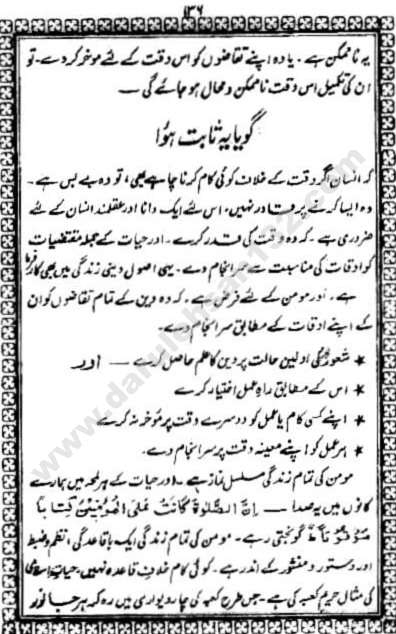 ۱۳۶
یہ ناممکن ہے۔ یا وہ اپنے تقاضوں کو اس وقت کے لئے موخر کر دے۔ تو
ان کی تکمیل اس وقت ناممکن و محال ہو جائے گی ——
گویا یہ ثابت ہوا
کہ انسان اگر وقت کے خلاف کوئی کام کرنا چاہے بھی، تو وہ بے بس ہے۔
وہ ایسا کرنے پر قادر نہیں۔ اس لئے ایک دانا اور عقلمند انسان کے لئے
ضروری ہے۔ کہ وہ وقت کی قدر کرے۔ اور حیات کے جملہ مقتضیات
کو اوقات کی مناسبت سے سرانجام دے۔ یہی اصول دینی زندگی میں بھی کارفرما
ہے۔ اور مومن کے لئے فرض ہے۔ کہ وہ دین کے تمام تقاضوں کو ان
کے اپنے اوقات کے مطابق سرانجام دے۔
★ شعور کی اولین حالت پر دین کا علم حاصل کرے —— اور
★ اس کے مطابق راہ عمل اختیار کرے
★ اپنے کسی کام یا عمل کو دوسرے وقت پر موخر نہ کرے
★ ہر عمل کو اپنے معینہ وقت پر سرانجام دے۔
مومن کی تمام زندگی مسلسل نماز ہے۔ اور حیات کے ہر لمحہ میں ہمارے
کانوں میں یہ صدا —— اِنَّ الصَّلٰوۃَ کَانَتْ عَلَی الْمُؤْمِنِیْنَ کِتٰبًا
مَّوْقُوْتًا گونجتی رہے۔ مومن کی تمام زندگی ایک باقاعدگی، نظم و ضبط
اور دستور و منشور کے اندر ہے۔ کوئی کام خلاف قاعدہ نہیں۔ حیات اسلامی
کی مثال حریم کعبہ کی ہے۔ جس طرح کعبہ کی چاردیواری میں رہ کر ہر جانور
www.darulehsan-132.com